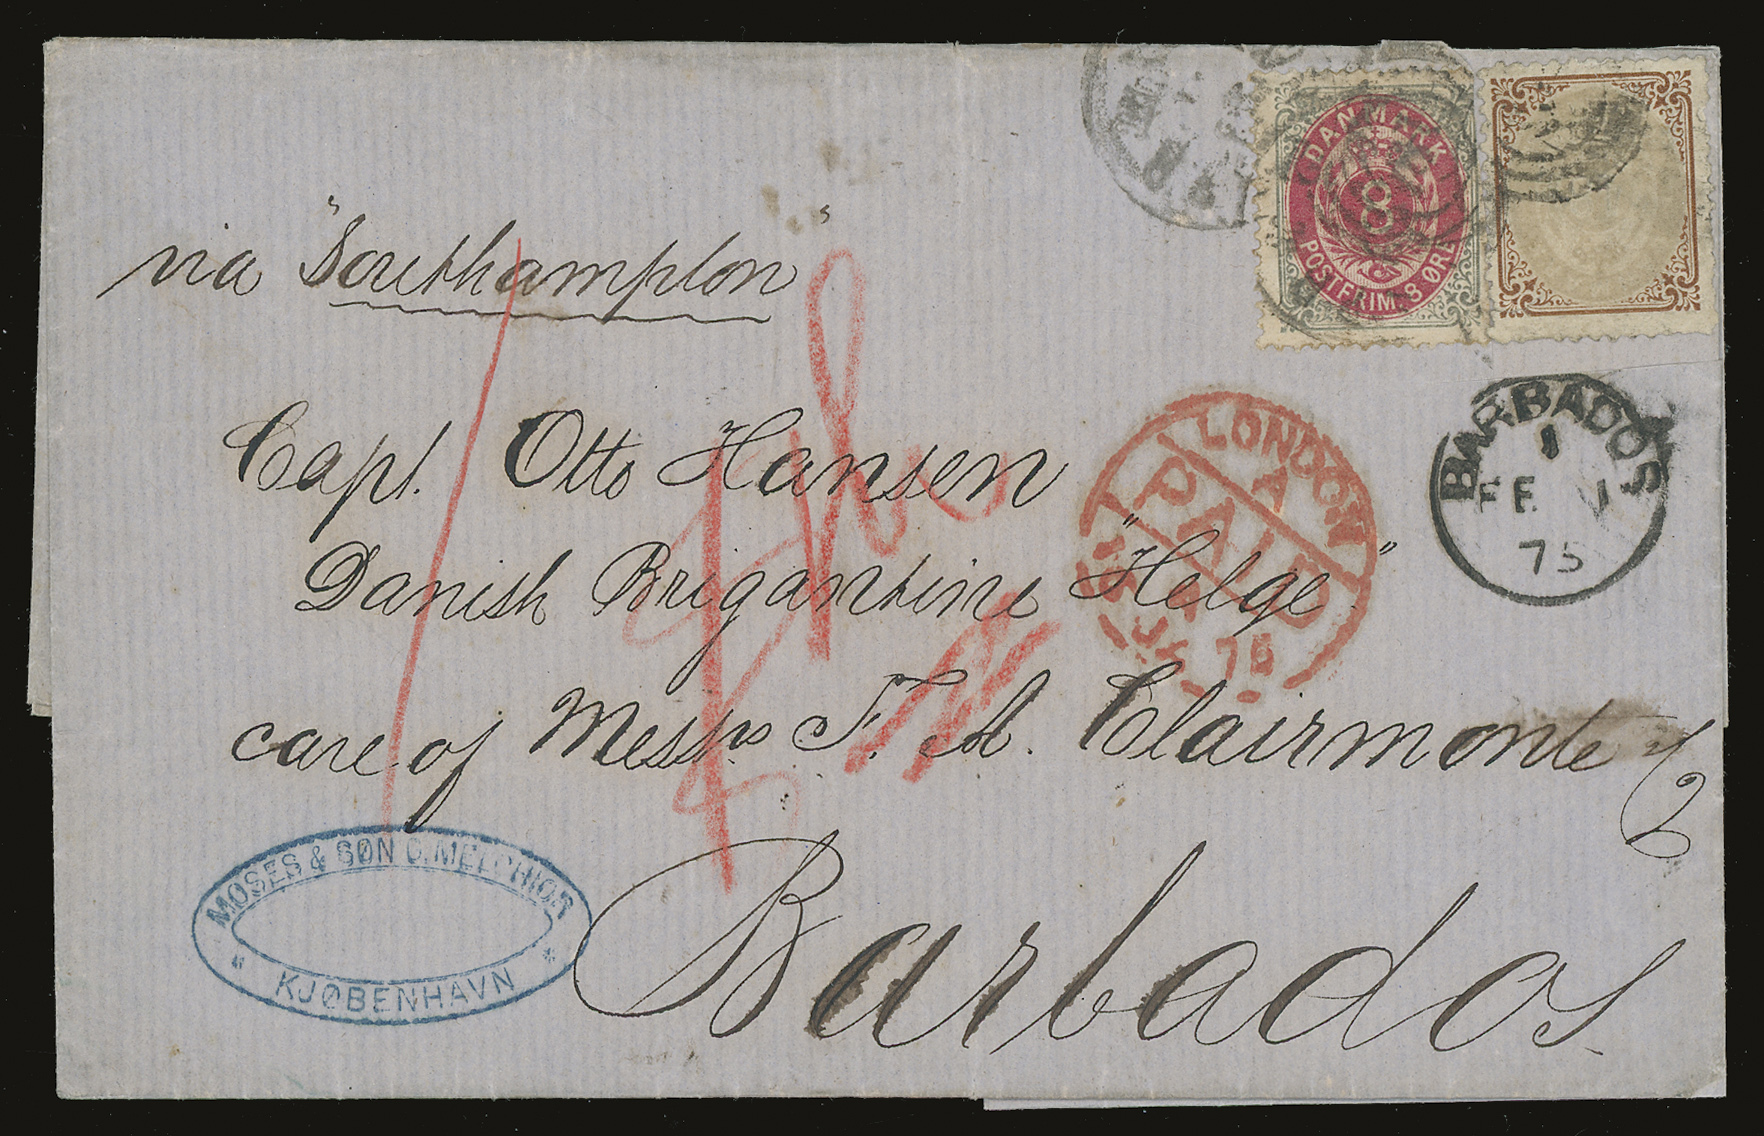 DANMARK
8
POSTFRIM. 8 ØRE
via "Southampton"
BARBADOS
1
FE 1
75
LONDON
A
PAID
75
Capt. Otto Hansen
Danish Brigantine "Helge"
care of Messrs F. A. Clairmonte
Barbados.
MOSES & SØN G. MELCHIOR
* KJØBENHAVN *